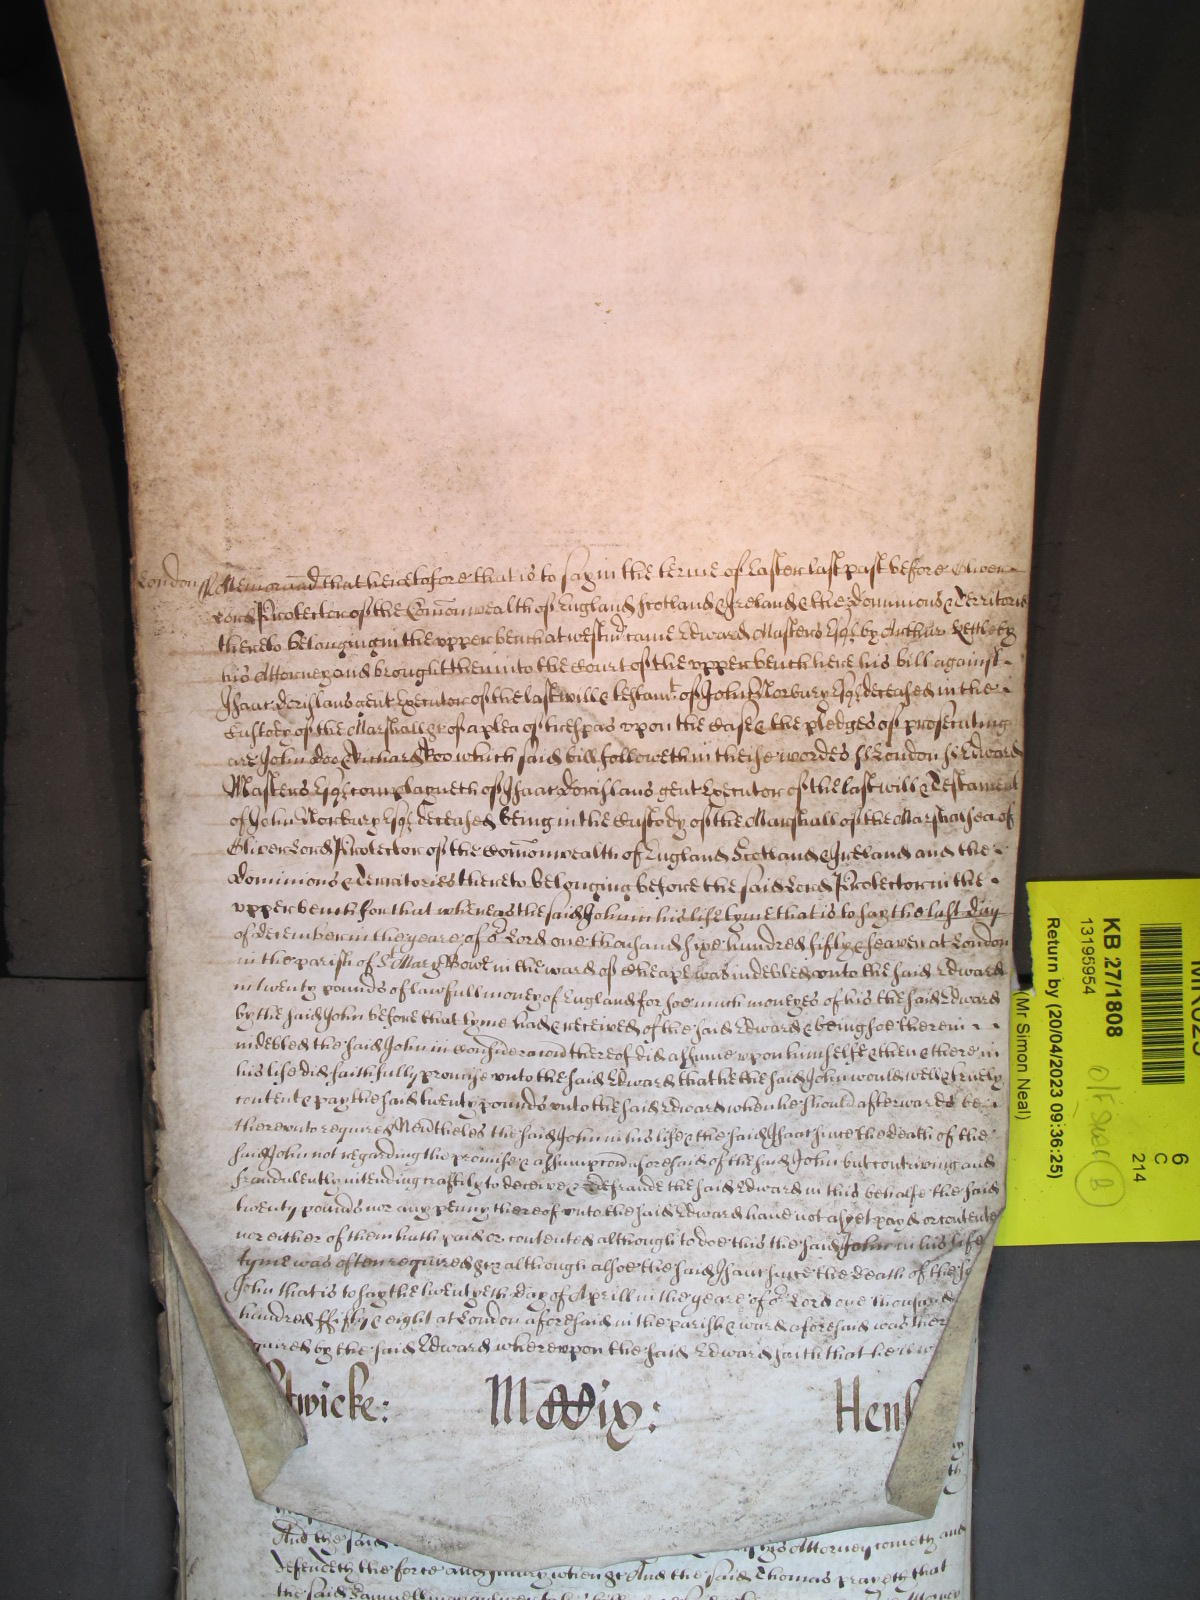 London ss Memorand that heretofore that is to say in the terme of Easter last past before Oliver
Lord Protector of the Comonwealth of England Scotland & Ireland & the Dominions & Territories
thereto belonging in the upper bench at westmr came Edward Masters Esqr by Arthur Kettleby
his Attorney and brought then into the Court of the upper bench here his bill against
Isaac Dorislaus gent Executor of the last will & testamt of John Norbury Esqr deceased in the
Custody of the Marshall &c of a plea of trespas upon the Case & the pledges of prosecuting
are John Doe & Richard Roo which said bill followeth in theise wordes ss London ss Edward
Masters Esqr complayneth of Isaac Dorislaus gent Executor of the last will & Testament
of John Norbury Esqr deceased being in the Custody of the Marshall of the Marshalsea of
Oliver Lord Protector of the Comonwealth of England Scotland & Ireland and the
Dominions & Territories thereto belonging before the said Lord Protector in the
upper bench For that whereas the said John in his life tyme that is to say the last day
of December in the yeare of or Lord one thousand sixe hundred fifty & seaven at London
in the parish of St Mary Bowe in the ward of Cheape was indebted unto the said Edward
in twenty pounds of lawfull money of England for soe much moneyes of his the said Edward
by the said John before that tyme had & received of the said Edward & being soe therein
indebted the said John in consideracon thereof did assume upon himselfe & then & there in
his life did faithfully promise unto the said Edward that he the said John would well & truely
content & pay the said twenty pounds unto the said Edward when he should afterwards be
thereunto required Nevtheles the said John in his life & the said Isaac since the death of the
said John not regarding the promise & assumpcon aforesaid of the said John but contriving and
fraudulently intending craftily to deceive & defraude the said Edward in this behalfe the said
twenty pounds nor any penny thereof unto the said Edward have not as yet payd or contented
nor either of them hath paid or contented although to doe this the said John in his life
tyme was often required &c & although alsoe the said Isaac since the death of the
John that is to say the twentyeth day of Aprill in the yeare of or Lord one thousand
hundred fifty & eight at London aforesaid in the parish & ward aforesaid was ther
quired by the said Edward whereupon the said Edward saith that he
twicke: Hens
And the said his Attorney cometh and
defendeth the force and injury when &c And the said Thomas prayeth that
the said Samuell may
KB 27/1808
13195954
Return by (20/04/2023 09:36:25)
(Mr Simon Neal)
6
C
214